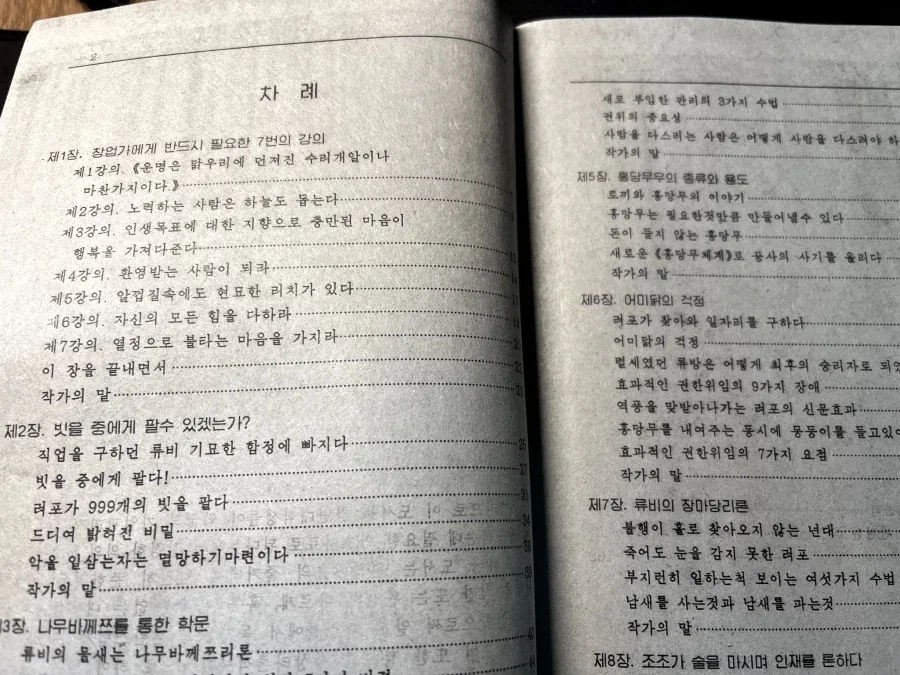 2
차 례
제1장. 창업가에게 반드시 필요한 7번의 강의
제1강의. 《운명은 닭우리에 던져진 수리개알이나
마찬가지이다.》
제2강의. 노력하는 사람은 하늘도 돕는다
제3강의. 인생목표에 대한 지향으로 충만된 마음이
행복을 가져다준다
제4강의. 환영받는 사람이 되라
제5강의. 알껍질속에도 현묘한 리치가 있다
제6강의. 자신의 모든 힘을 다하라
제7강의. 열정으로 불타는 마음을 가지라
이 장을 끝내면서 22
작가의 말 23
제2장. 빗을 중에게 팔수 있겠는가?
직업을 구하던 류비 기묘한 함정에 빠지다 25
빗을 중에게 팔다! 27
려포가 999개의 빗을 팔다 31
드디여 밝혀진 비밀 34
악을 일삼는자는 멸망하기마련이다 38
작가의 말 39
3장. 나무바께쯔를 통한 학문
류비의 물새는 나무바께쯔리론 40
새로 부임한 관리의 3가지 수법
권위의 중요성
사람을 다스리는 사람은 어떻게 사람을 다스려야 하
작가의 말
제5장. 홍당무우의 종류와 용도
토끼와 홍당무의 이야기
홍당무는 필요한것만큼 만들어낼수 있다
돈이 들지 않는 홍당무
새로운 《홍당무체계》로 공사의 사기를 올리다
작가의 말
제6장. 어미닭의 걱정
려포가 찾아와 일자리를 구하다
어미닭의 걱정
렬세였던 류방은 어떻게 최후의 승리자로 되였
효과적인 권한위임의 9가지 장애
역풍을 맞받아나가는 려포의 신문효과
홍당무를 내여주는 동시에 몽둥이를 들고있어
효과적인 권한위임의 7가지 요점
작가의 말
제7장. 류비의 장마당리론
불행이 홀로 찾아오지 않는 년대
죽어도 눈을 감지 못한 려포
부지런히 일하는척 보이는 여섯가지 수법
남새를 사는것과 남새를 파는것
작가의 말
제8장. 조조가 술을 마시며 인재를 론하다